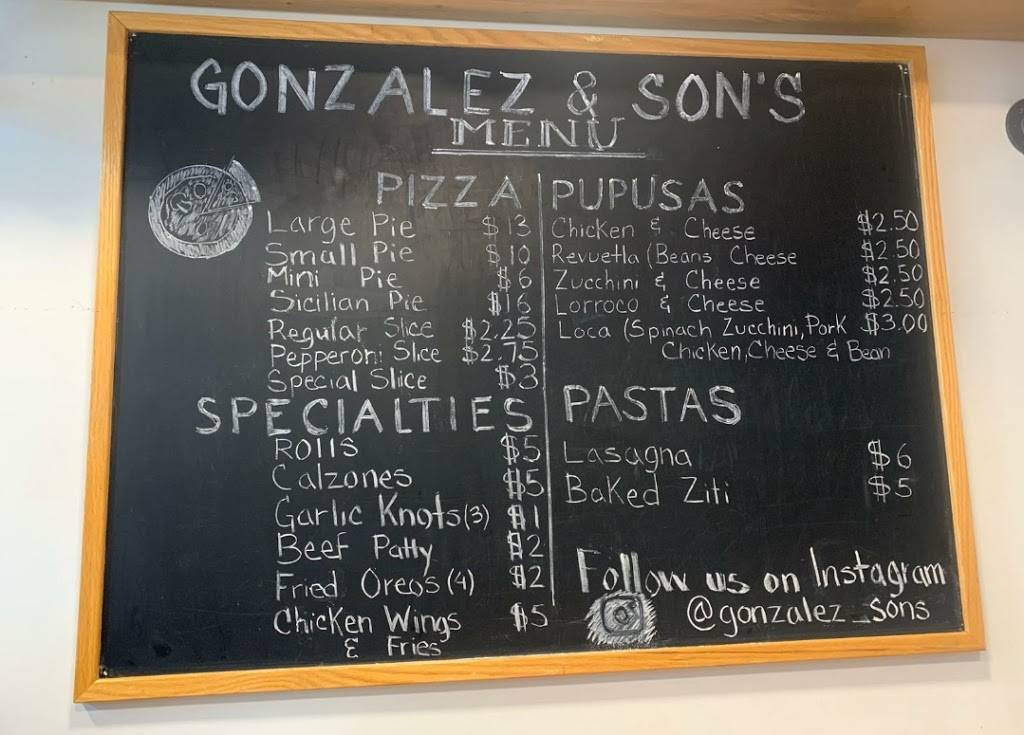 GONZALEZ & SON'S
MENU
PIZZA
Large Pie $13
Small Pie $10
Mini Pie $6
Sicilian Pie $16
Regular Slice $2.25
Pepperoni Slice $2.75
Special Slice $3
SPECIALTIES
Rolls $5
Calzones $5
Garlic Knots (3) $1
Beef Patty $2
Fried Oreos (4) $2
Chicken Wings $5
& Fries
PUPUSAS
Chicken & Cheese $2.50
Revuetla (Beans Cheese $2.50
Zucchini & Cheese $2.50
Lorroco & Cheese $2.50
Loca (Spinach Zucchini, Pork $3.00
Chicken, Cheese & Bean
PASTAS
Lasagna $6
Baked Ziti $5
Follow us on Instagram
@gonzalez_sons